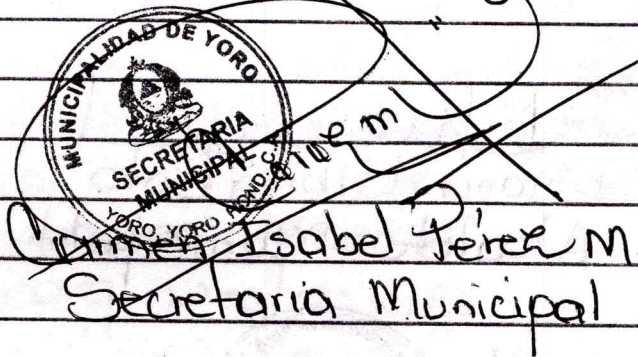 MUNICIPALIDAD DE YORO
SECRETARIA
MUNICIPAL
YORO, YORO HOND. C.
Carmen Isabel Pérez M.
Secretaria Municipal